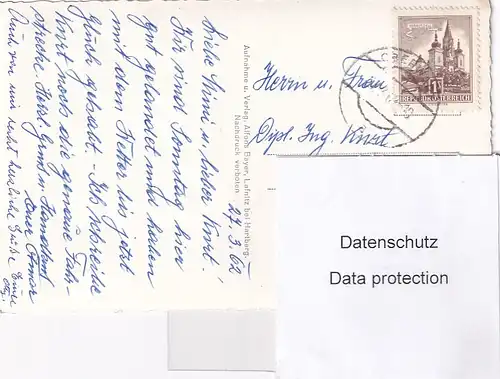 27.3.62
Liebe Mimi u. lieber Kurt!
Wir sind Sonntag hier
gut gelandet und haben
mit dem Wetter bis jetzt
Glück gehabt - Ich schreibe
Kurt noch die genaue
Herzl.
Auch von mir recht herzliche Grüße Euer
Aufnahme u. Verlag, Alfons Bayer, Lafnitz bei Hartberg.
Nachdruck verboten
Herrn u. Frau
Dipl. Ing. Kurt
REPUBLIK ÖSTERREICH
Datenschutz
Data protection